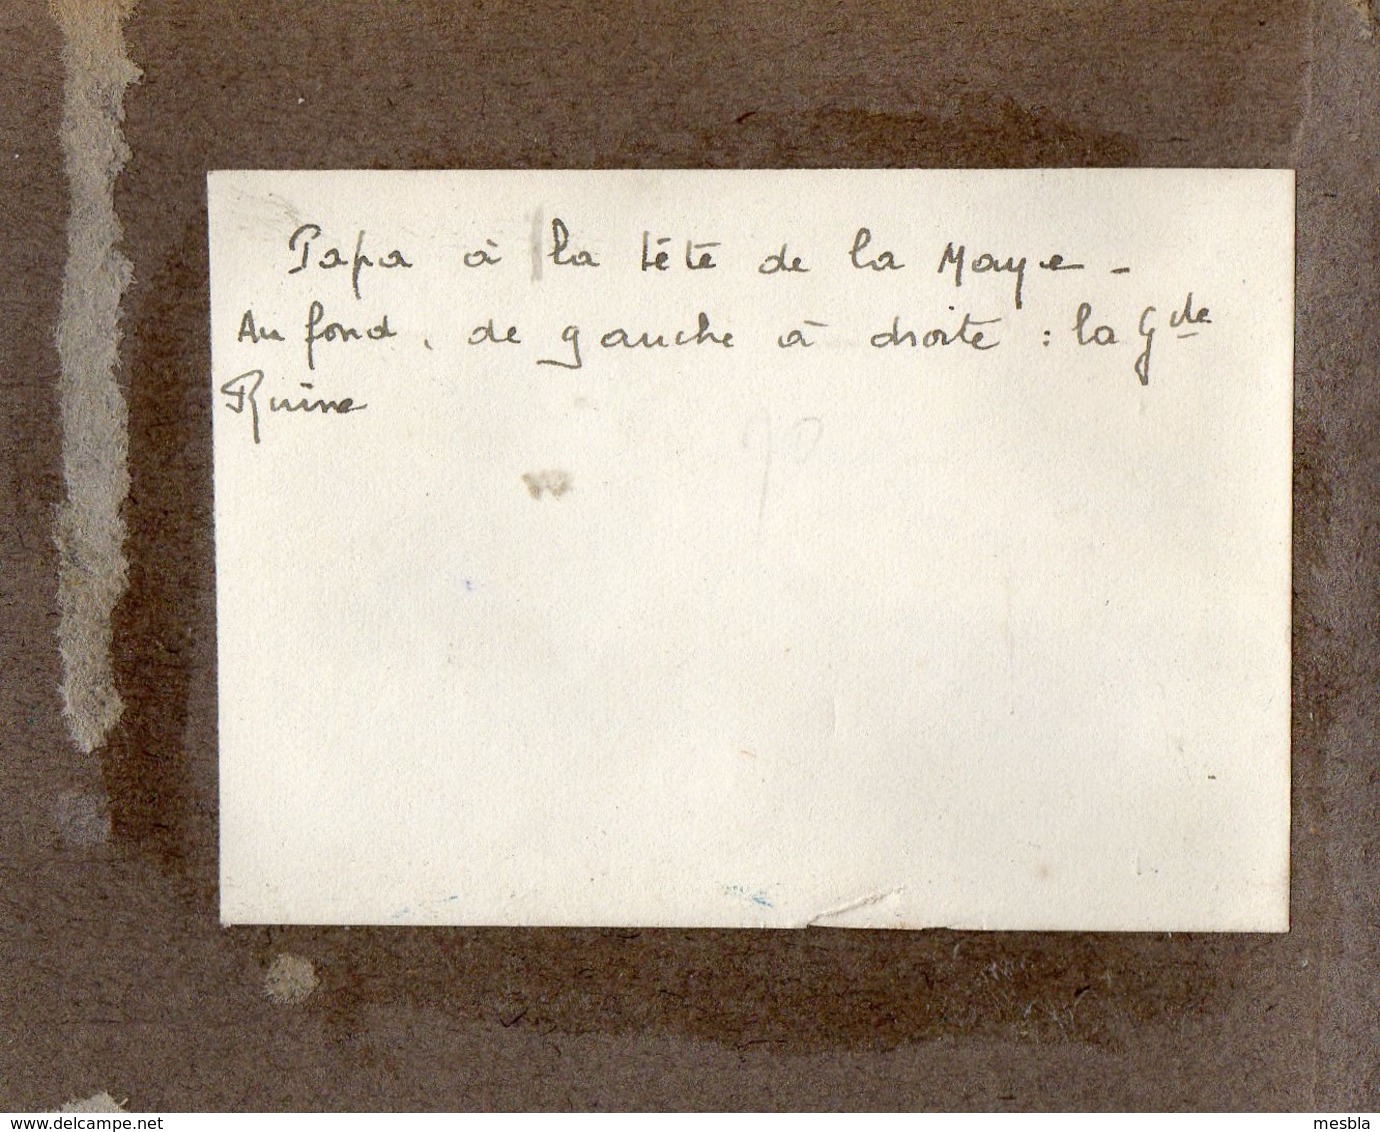 Papa à la tête de la Maye -
Au fond, de gauche à droite : la Gde
Ruine
70
www.delcampe.net
mesbla